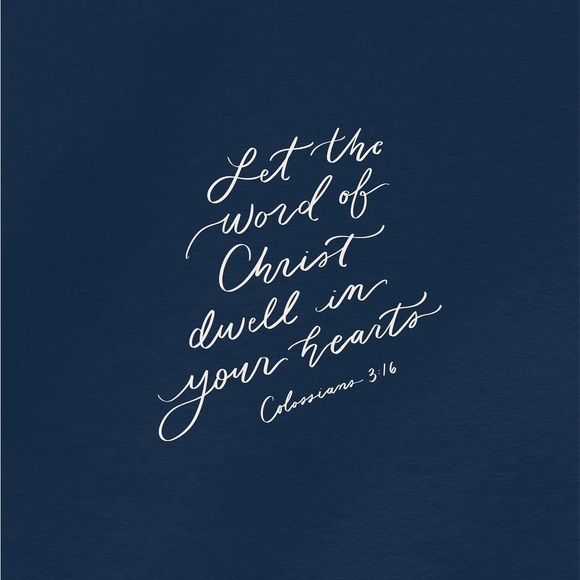 Let the
word of
Christ
dwell in
your hearts
Colossians 3:16